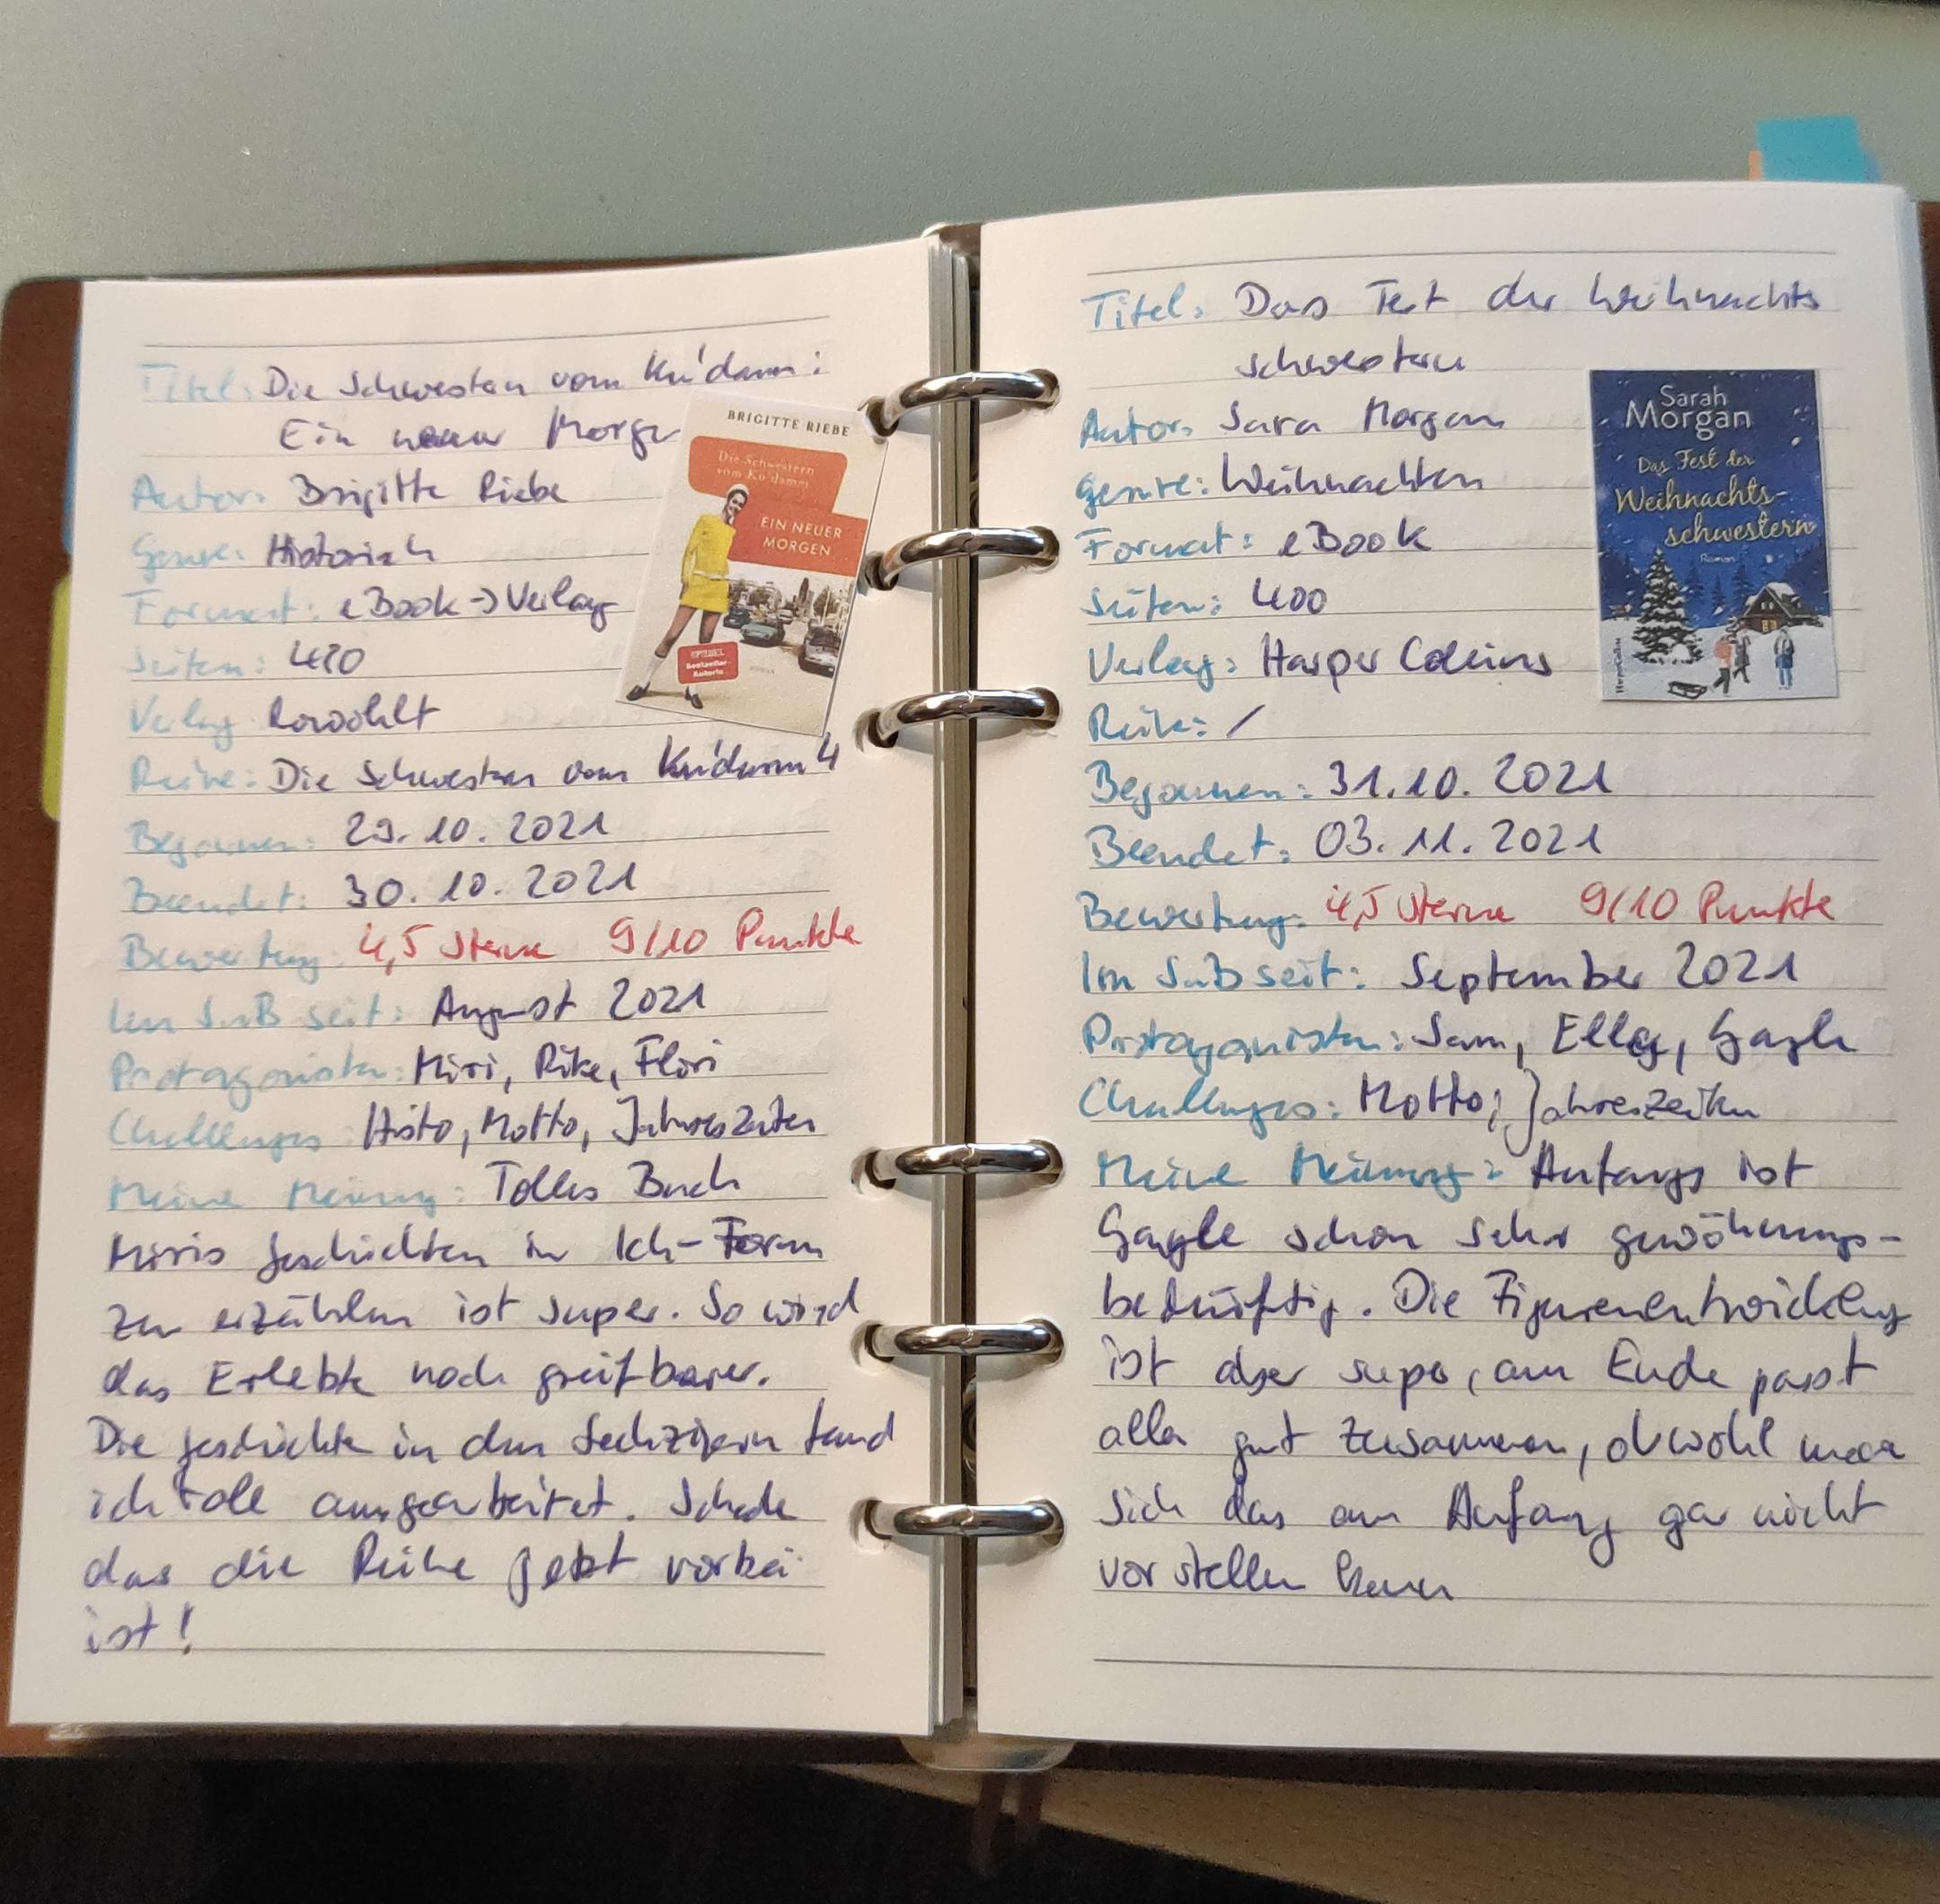 Titel: Die Schwestern vom Ku'damm:
Ein neuer Morgen
Autor: Brigitte Riebe
Genre: Historisch
Format: eBook → Verlag
Seiten: 420
Verlag Rowohlt
Reihe: Die Schwestern vom Ku'damm 4
Begonnen: 29.10.2021
Beendet: 30.10.2021
Bewertung: 4,5 Sterne 9/10 Punkte
Im SuB seit: August 2021
Protagonisten: Miri, Rike, Flori
Challenges: Histo, Motto, Jahreszeiten
Meine Meinung: Tolles Buch
Miris Geschichten in Ich-Form
zu erzählen ist super. So wird
das Erlebte noch greifbarer.
Die Geschichte in den Sechzigern fand
ich toll ausgearbeitet. Schade
das die Reihe jetzt vorbei
ist!
BRIGITTE RIEBE
Die Schwestern
vom Ku'damm
EIN NEUER
MORGEN
SPIEGEL
Bestseller-
Autorin
ROMAN
Titel: Das Fest der Weihnachts
schwestern
Autor: Sara Morgan
Genre: Weihnachten
Format: eBook
Seiten: 400
Verlag: Harper Collins
Reihe: /
Begonnen: 31.10.2021
Beendet: 03.11.2021
Bewertung: 4,5 Sterne 9/10 Punkte
Im SuB seit: September 2021
Protagonisten: Sam, Ella, Gayle
Challenges: Motto, Jahreszeiten
Meine Meinung: Anfangs ist
Gayle schon sehr gewöhnungs-
bedürftig. Die Figurenentwicklung
ist aber super, am Ende passt
alles gut zusammen, obwohl man
sich das am Anfang gar nicht
vorstellen kann
Sarah
Morgan
Das Fest der
Weihnachts-
schwestern
Roman
HarperCollins